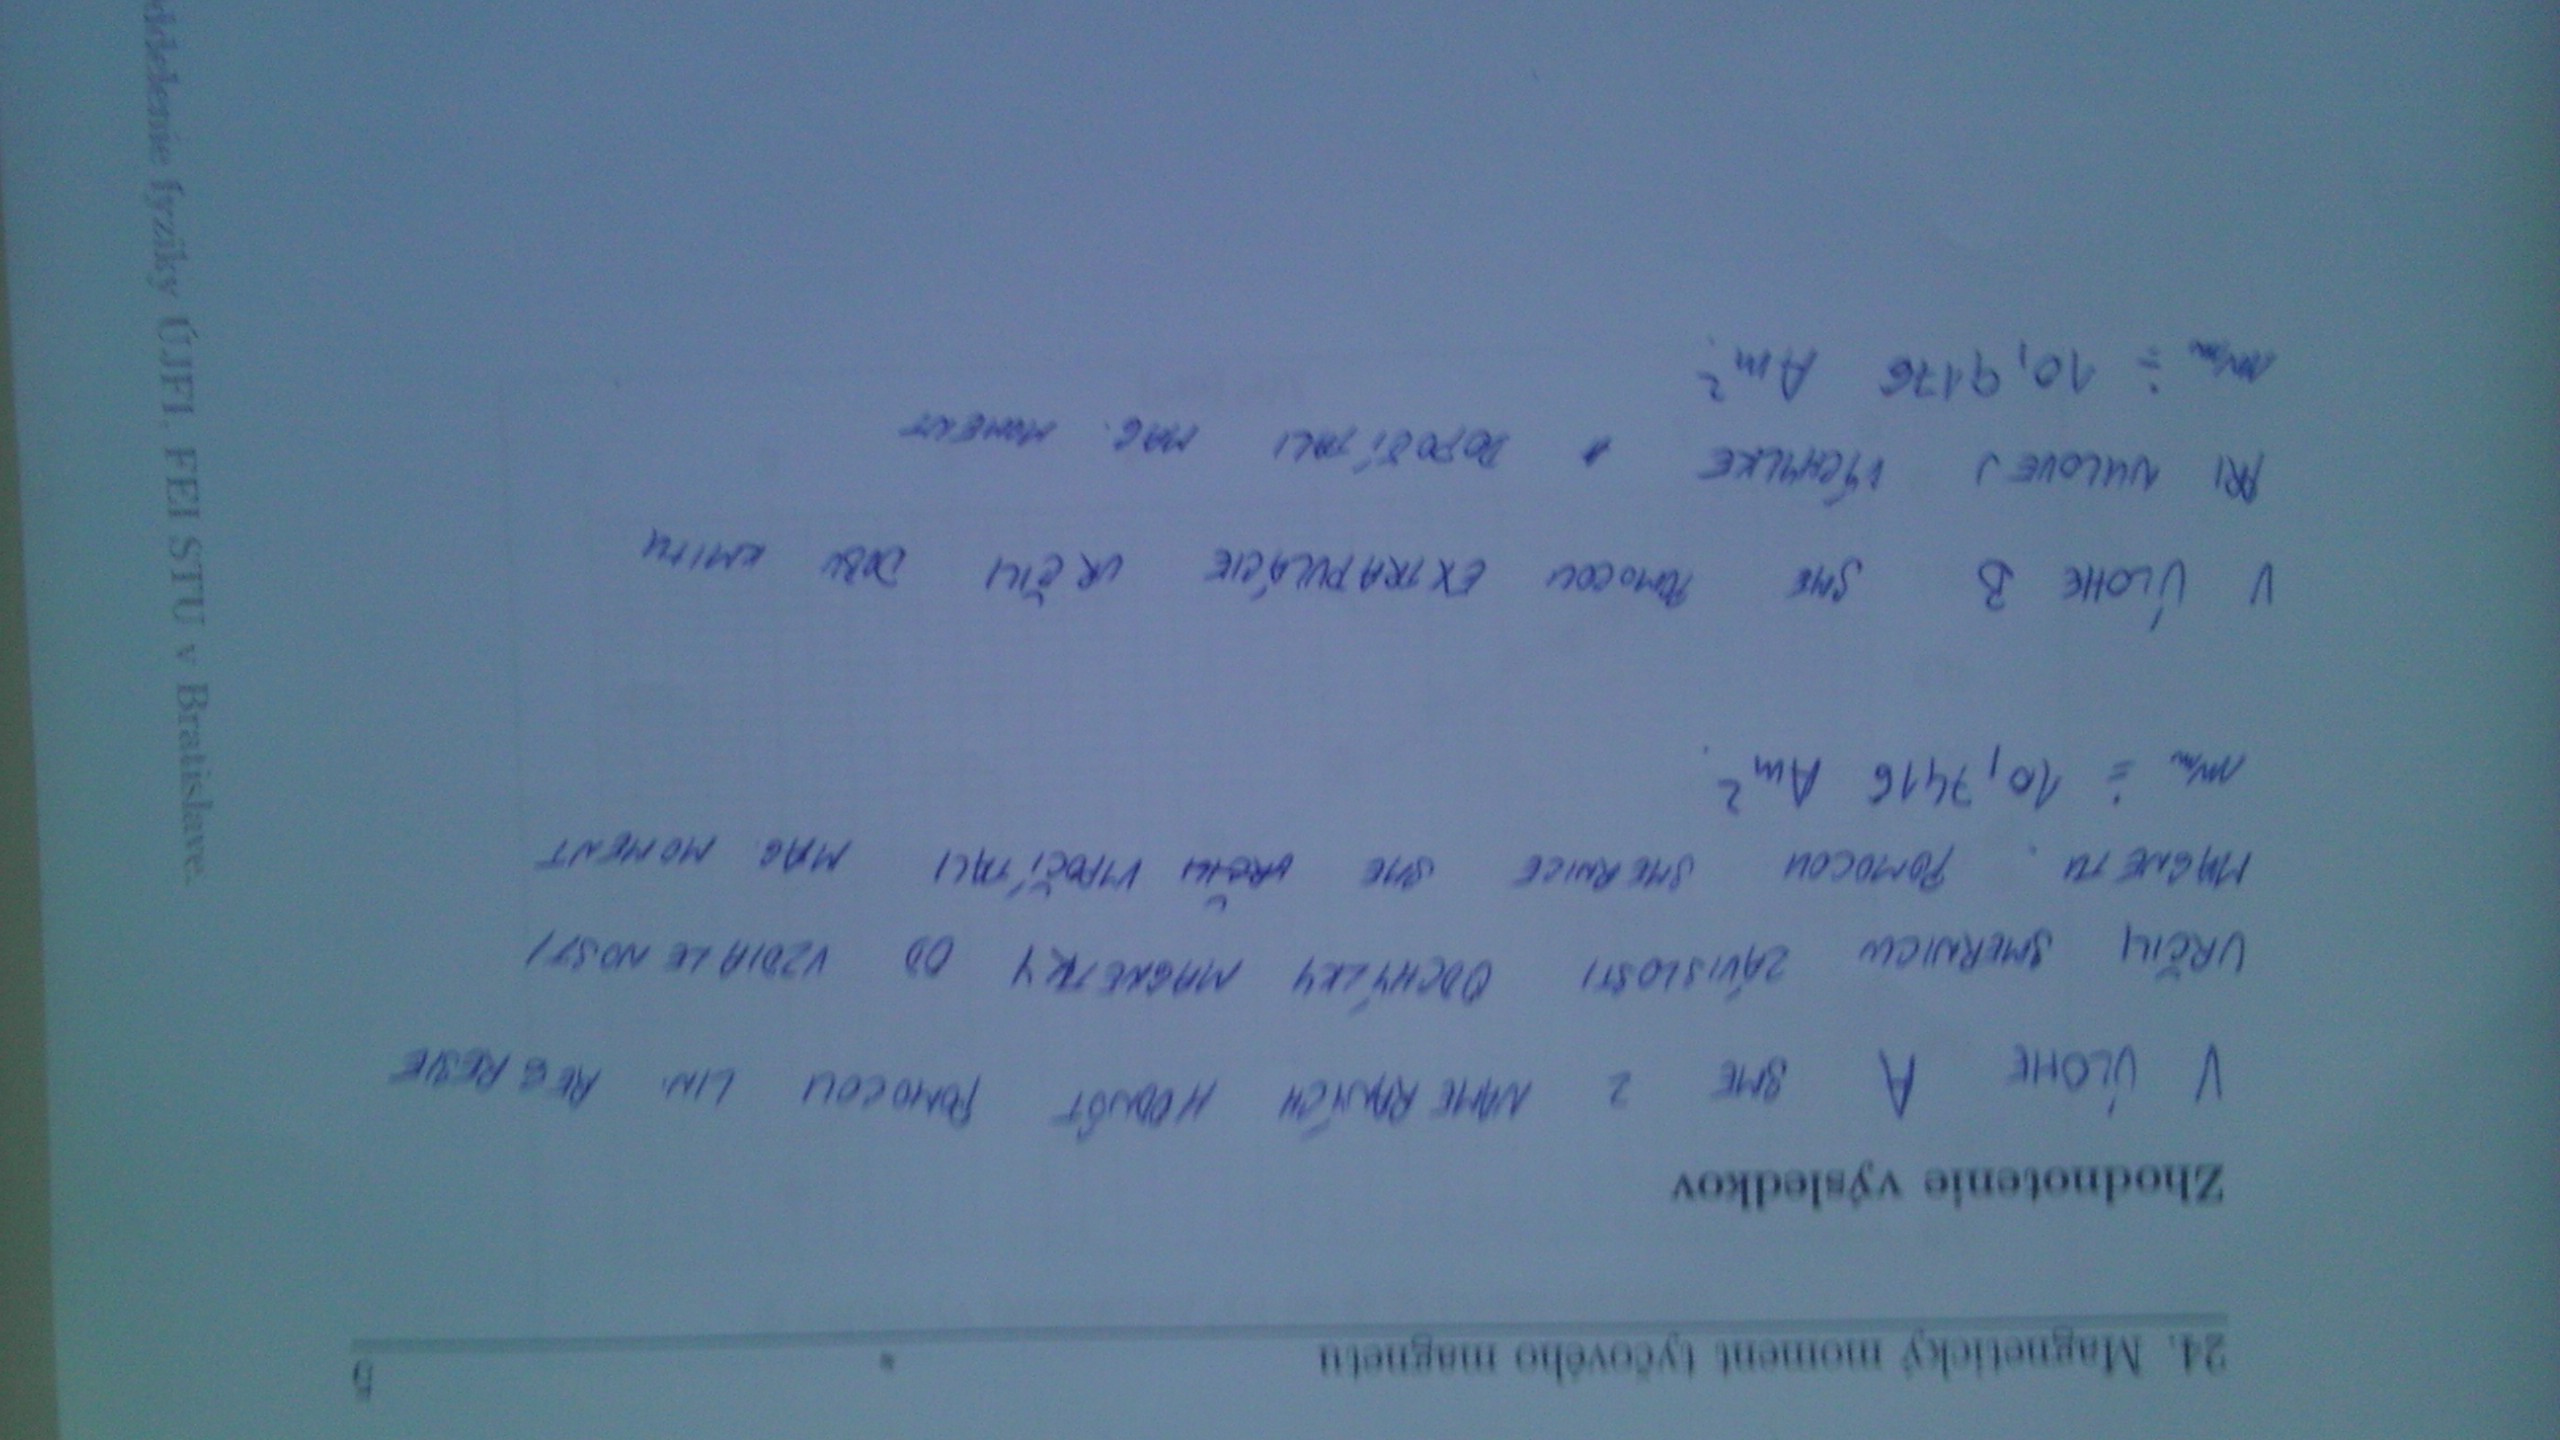 24. Magnetický moment tyčového magnetu 5
Zhodnotenie výsledkov
V ÚLOHE A SME Z NAMERANÝCH HODNÔT POMOCOU LIN. REGRESIE
URČILI SMERNICU ZÁVISLOSTI ODCHÝLKY MAGNETKY OD VZDIALENOSTI
MAGNETU. POMOCOU SMERNICE SME URČILI VYPOČÍTALI MAG. MOMENT
mm ≐ 10,7416 Am².
V ÚLOHE B SME POMOCOU EXTRAPULÁCIE URČILI DOBU KMITU
PRI NULOVEJ VÝCHYLKE A DOPOČÍTALI MAG. MOMENT
mm ≐ 10,9176 Am².
oddelenie fyziky ÚJFI, FEI STU v Bratislave.